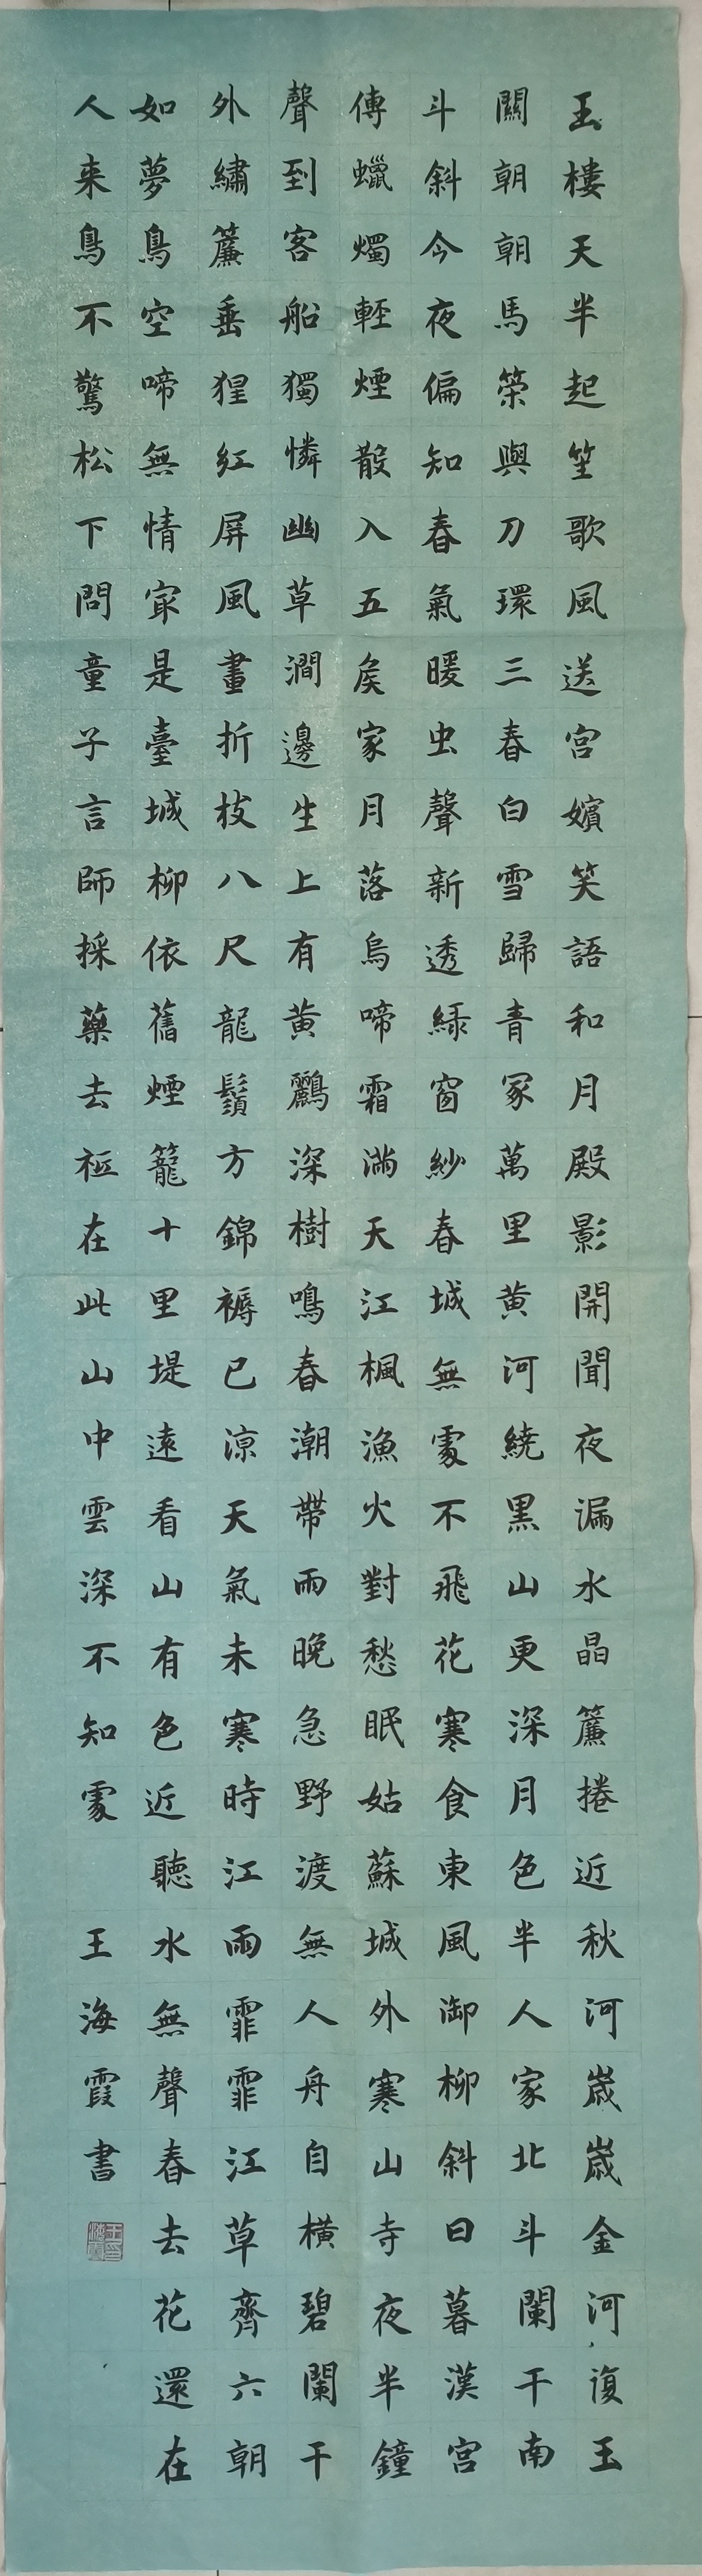 玉樓天半起笙歌風送宮嬪笑語和月殿影開聞夜漏水晶簾捲近秋河歲歲金河復玉
關朝朝馬策與刀環三春白雪歸青冢萬里黃河繞黑山更深月色半人家北斗闌干南
斗斜今夜偏知春氣暖虫聲新透綠窗紗春城無處不飛花寒食東風御柳斜日暮漢宮
傳蠟燭輕煙散入五侯家月落烏啼霜滿天江楓漁火對愁眠姑蘇城外寒山寺夜半鐘
聲到客船獨憐幽草澗邊生上有黃鸝深樹鳴春潮帶雨晚急野渡無人舟自橫碧闌干
外繡簾垂猩紅屏風畫折枝八尺龍鬚方錦褥已涼天氣未寒時江雨霏霏江草齊六朝
如夢鳥空啼無情最是臺城柳依舊煙籠十里堤遠看山有色近聽水無聲春去花還在
人来鳥不驚松下問童子言師採藥去秪在此山中雲深不知處 王海霞書